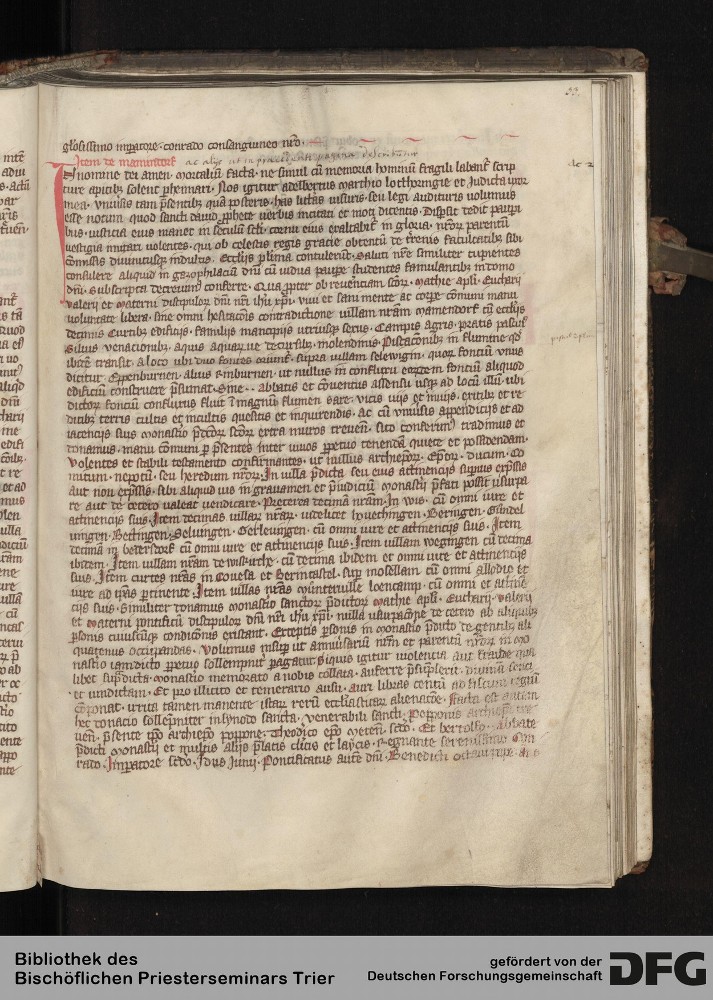 33.
gl'osissimo inpatore · conrado consanguineo nr̄o ·
Item de maminbrosͨ
In nomine dei amen · mortaliū facta · ne simul cū memoria hominū fragili labant' scrip
ture apicib; solent phennari · Nos igitur adelbertus marchio lothoringie et Iudicta uxor
mea · vniuis tam p̄sentib; quā posteris · has litt̄as uisuris · seu legi audituris volumus
esse notum quod sancti dauid pphete uerbis incitati et moti dicentis · Dispsit dedit paupi
bus · iusticia eius manet in seculū sc̄li · cornu eius exaltabit' in gloria · nr̄or parentū
uestigia imitari uolentes · qui ob celestis regis gracie obtentū de t̄renis facultatib; sibi
cōmissis diuinitusq; indultis · Ecclijs pl'ima contulerūt · Saluti nr̄e similiter cupientes
consulere aliquid in gazophilaciū dn̄i cū uidua paupe studentes famulantib; in domo
dn̄i · subscripta decreuim' conferre · Qua ppter ob reuerenciam sc̄or · mathie apl'i · Eucharij
valerij et materni discipulor dn̄i nr̄i ihū xp̄i · viui et sani mente ac corpe cōmuni manu
voluntate libera · sine omni hesitacōis contradictione villam nr̄am mamendorf cū ecclijs
decimis Curtib; edificijs · familijs mancipijs utriusq; sexus · Campis agris · pratis pascuis
Siluis venacionib; · aquis aquarūue decursib; · molendinis · Piscacōnib; in flumine qd'
ibidē transit · a loco ubi duo fontes oriunt' · supra uillam selewigin · quor fonciū vnus
dicitur · Eppenburnen · alius Emburnen · ut nullus in confluxu eordem fonciū aliquod
edificiū construere p̄sumat · Sine · abbatis et cōuentus assensu usq; ad locū illū · ubi
dictor fonciū confluxus fluit ī magnū flumen sare · vicis uijs et inuijs · exitib; et re
ditib; terris cultis et incultis quesitis et inquirendis · ac cū vniuis appendicijs et ad
iacencijs suis monast'io p̄dcōr sc̄or extra muros treueū · sito conferim' tradimus et
donamus · manu cōmuni p p̄sentes inter viuos ppetuo tenendā quiete et possidendam ·
Volentes et stabili testamento confirmantes · ut nullius archiepor · Epor · ducum · Co
mitum · nepotū · seu heredum nr̄or · In uilla p̄dicta seu eius attinencijs supius exp̄ssis
aut non exp̄ssis · sibi aliquid ius in grauamen et p̄iudiciū monast'ij p̄fati possit usurpa
re aut de cetero valeat vendicare · Preterea decimā nr̄am · In wis · cū omni iure et
attinencijs suis · Item decimas uillar nr̄ar · uidelicet
ungen · Bettingen · Seluingen · Gerleuingen · cū omni iure et attinencijs suis · Item
decimā in cū omni iure et attinencijs suis · Item uillam wegingen cū decima
ibidem · Item uillam nr̄am de wiskirche · cū decima ibidem et omni iure et attinencijs
suis · Item curtes nr̄as in Couesa et Berincastel · sup mosellam cū omni allodio et
iure ad ip̄as p̄tinente · Item uillas nr̄as munteruille loencamp · cū omni et attinē
cijs suis · Similiter donamus monast'io sanctor p̄dictor mathie apl'i · Eucharij · valerij
et materni pontificū discipulor dn̄i nr̄i ihū xp̄i · nulla usurpacōne de cetero ab aliquib;
psonis cuiuscūq; condicōnis existant · Exceptis psonis in monast'io p̄dicto degentib;
quatenus occupandas · Volumus insup ut anniu'sariū nr̄m et parentū nr̄or in mo
nast'io iamdicto ppetuo sollempnit' pagatur · Siquis igitur uiolencia aut fraude qua
libet sup̄dicta · monast'io memorato a nobis collata · auferre p̄sūpserit ·
et uindictam · Et pro illicito et temerario ausu · auri libras centū ad fiscum regiū
cōponat · irrita tamen manente istar rerū ecclesiasticar alienacōe · Facta est autem
hec donacio sollēpniter in synodo sancta · venerabilis sancti · Popponis archiepi tre
ueū · p̄sente ip̄o archiepo poppone · Theodico epo meteū · scd̄o · Et bertolfo · abbate
p̄dicti monast'ij et multis alijs p̄latis cl'icis et laycis · Regnante serenissimo Con
rado · Inpatore scd̄o · Idus Iunij · Pontificatus autē dn̄i · Benedicti octaui pape
Bibliothek des
Bischöflichen Priesterseminars Trier
gefördert von der
Deutschen Forschungsgemeinschaft
DFG